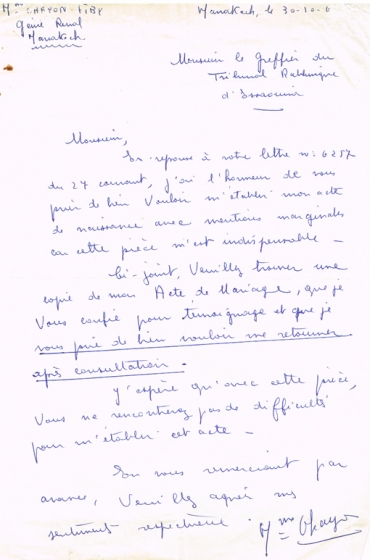 Mme CHAYON-
Marrakech, le 30-10-6
Génie Rural
Marrakech.
Monsieur le Greffier du
Tribunal Rabbinique
d'Essaouira
Monsieur,
En réponse à votre lettre n: 6257
du 27 courant, j'ai l'honneur de vous
prier de bien vouloir m'établir mon acte
de naissance avec mentions marginales
car cette pièce m'est indispensable -
Ci-joint, Veuillez trouver une
copie de mon Acte de Mariage, que je
Vous confie pour témoignage et que je
vous prie de bien vouloir me retourner
après consultation -
J'espère qu'avec cette pièce,
Vous ne rencontrerez pas de difficultés
pour m'établir cet acte -
En vous remerciant par
avance, Veuillez agréer mes
sentiments respectueux.
Mme Chayon